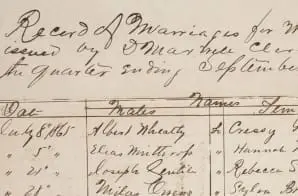 Record of Marriages for M
issued by D Marble Cler
the quarter ending September
Dat Males Names Fem
July 8" 1865 Albert Wheatly to Creasy
" 5" " Elias Winthrop " Hannah
" 21" " Joseph " Rebecca S
" 28" " Milas Owens "